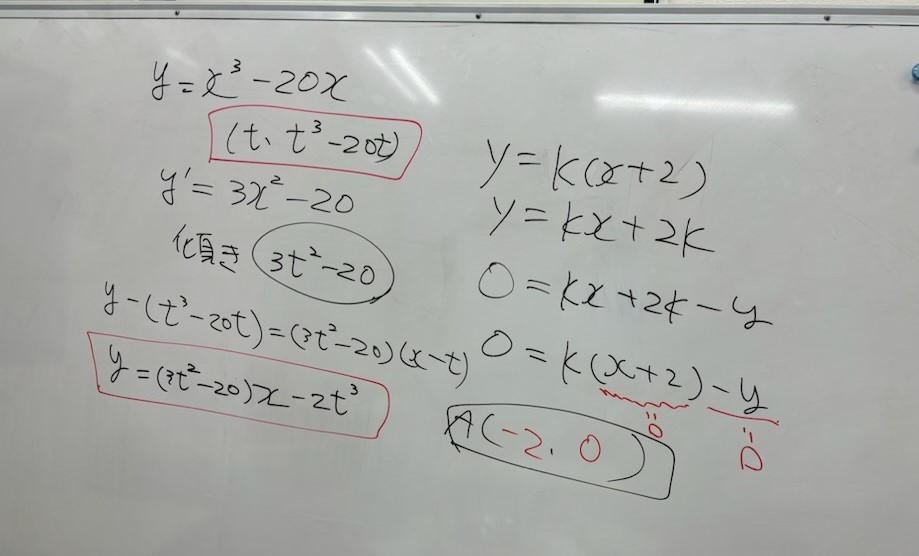 y=x³-20x
(t、t³-20t)
y'=3x²-20
傾き 3t²-20
y-(t³-20t)=(3t²-20)(x-t)
y=(3t²-20)x-2t³
y=k(x+2)
y=kx+2k
0=kx+2k-y
0=k(x+2)-y
=0 =0
A(-2、0)